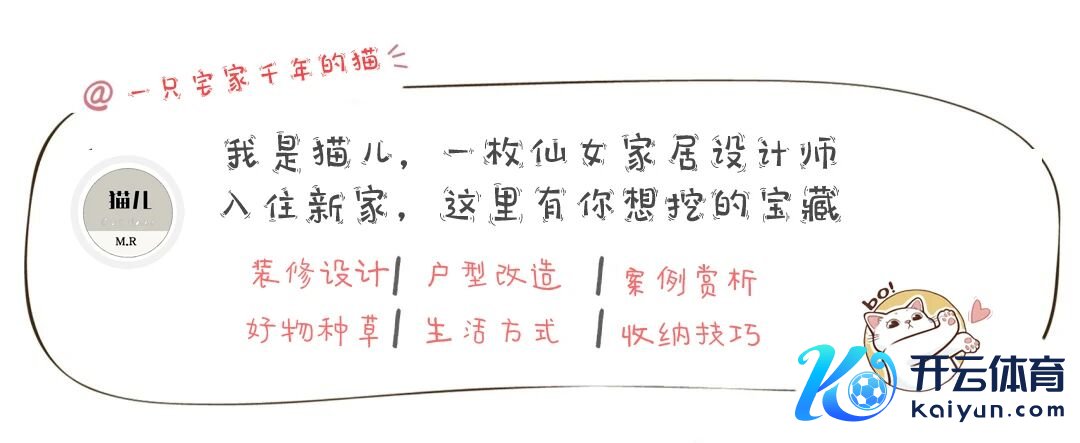 @一只宅家千年的猫
我是猫儿，一枚仙女家居设计师
入住新家，这里有你想挖的宝藏
猫儿
M.R
装修设计| 户型改造 | 案例赏析
好物种草| 生活方式 | 收纳技巧
bo!
开云体育
kaiyun.com